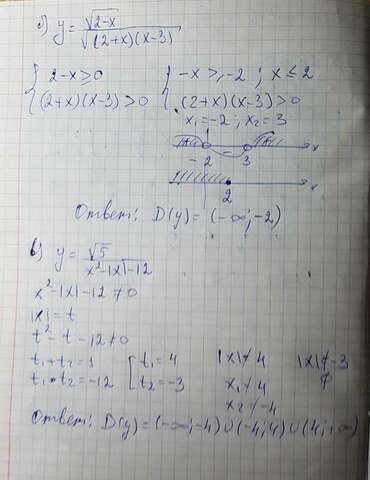 б) y = √(2-x) / √((2+x)(x-3))
{ 2-x ≥ 0
(2+x)(x-3) > 0
{ -x ≥ -2 ; x ≤ 2
(2+x)(x-3) > 0
x₁ = -2 ; x₂ = 3
+ - + x
-2 3
x
2
Ответ: D(y) = (-∞; -2)
в) y = √5 / (x²-|x|-12)
x²-|x|-12 ≠ 0
|x| = t
t²-t-12 ≠ 0
t₁+t₂ = 1
t₁·t₂ = -12
[ t₁ = 4
t₂ = -3
|x| ≠ 4
x₁ ≠ 4
x₂ ≠ -4
|x| ≠ -3
∅
Ответ: D(y) = (-∞; -4) ∪ (-4; 4) ∪ (4; +∞)